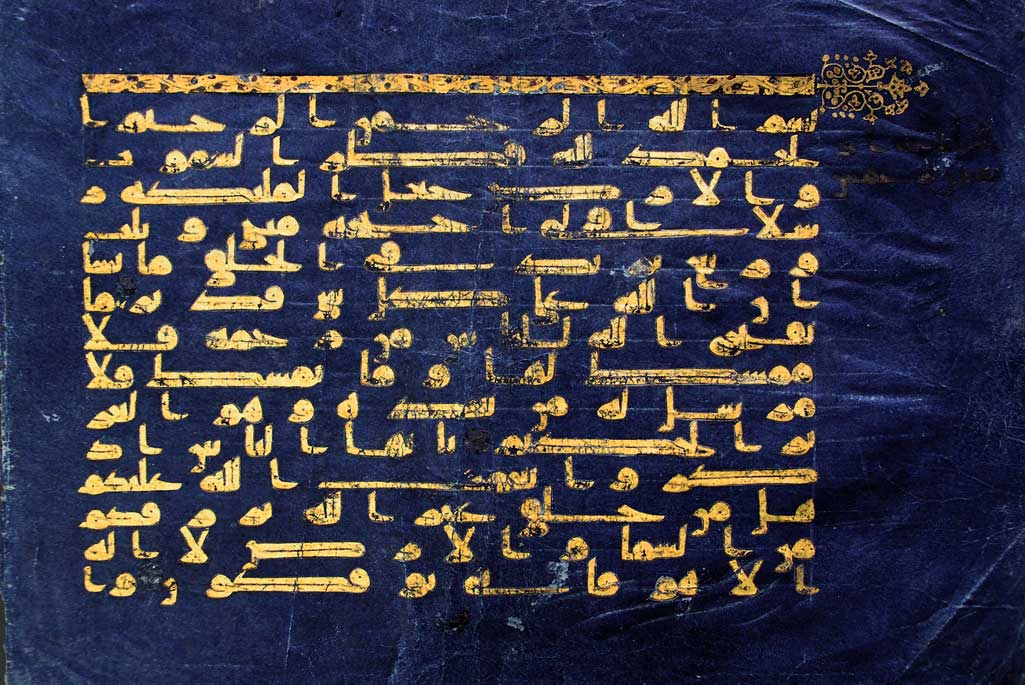 بسم الله الرحمن الرحيم ا
لحمد لله فطر السموت
و الارض جعل الملئكه ر
سلا اولى اجنحه مثنى و ثلث
و ربع يزيد فى الخلق ما يشا
ان الله على كل شى قدير ما
يفتح الله للناس من رحمه فلا
ممسك لها و ما يمسك فلا
مرسل له من بعده و هو العز
يز الحكيم يايها الناس اذ
كروا نعمت الله عليكم
هل من خلق غير الله يرزقكم
من السما و الارض لا اله
الا هو فانى توفكون و ا